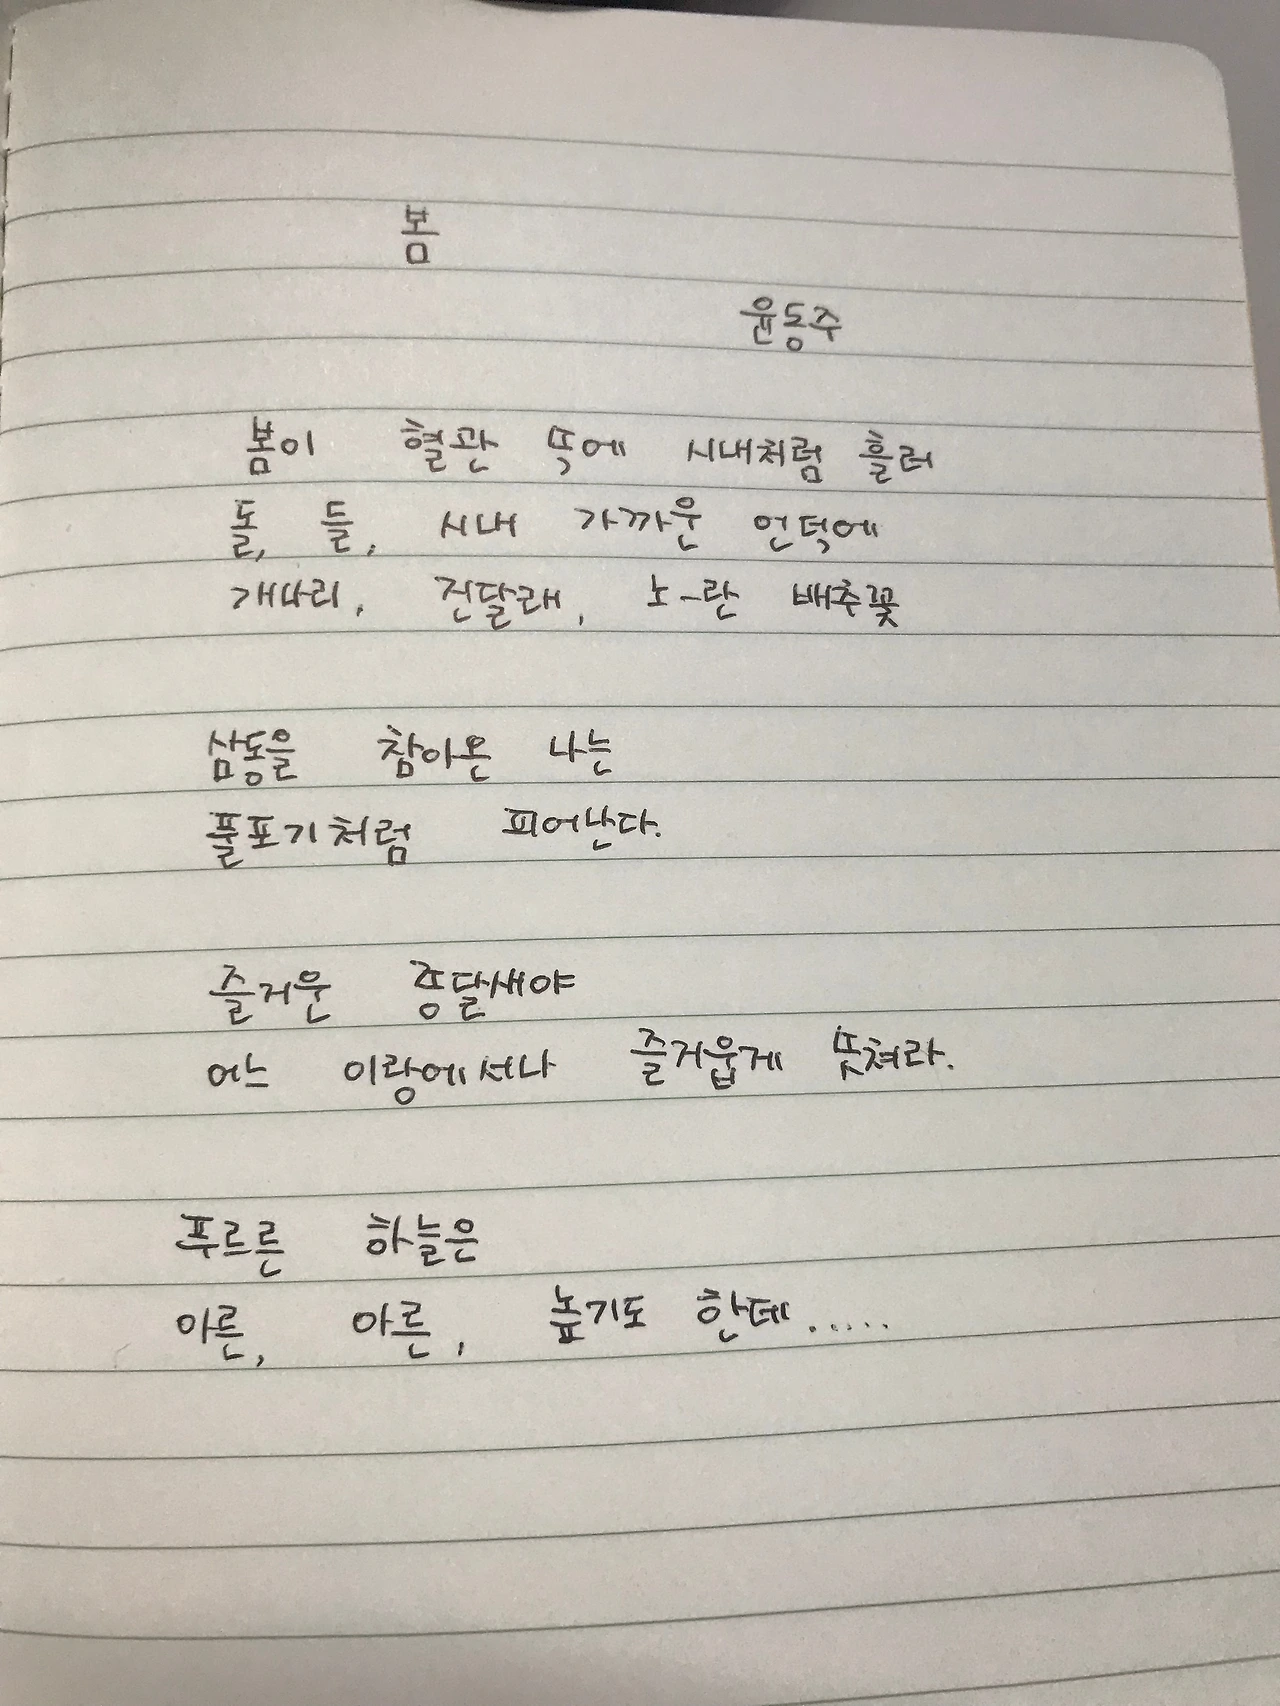 봄
윤동주
봄이 혈관 뜻에 시내처럼 흘러
돌, 들, 시내 가까운 언덕에
개나리, 진달래, 노-란 배추꽃
삼동을 참아온 나는
풀포기처럼 피어난다.
즐거운 종달새야
어느 이랑에서나 즐거웁게 뜻쳐라.
푸르른 하늘은
아른, 아른, 높기도 한데......